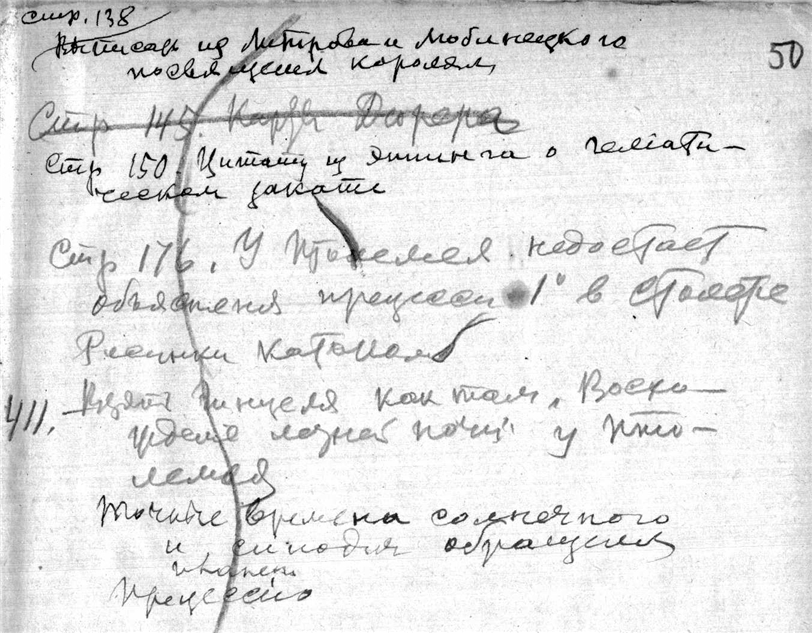 стр. 138
50
Выписать из Митрова и Моблнецкого
посвящения королям
Стр 145. Карты Дюрера
Стр 150. Цитату из о гелиати-
ческом закате
Стр 176. У Птолемея недостает
объяснения прецессии 1° в столетие
Рисунки
411. Взять Гинцеля как там "Восхо-
ждение поздней ночи" у Пто-
лемея
Точные времена солнечного
и синодич обращения
планет
Прецессию